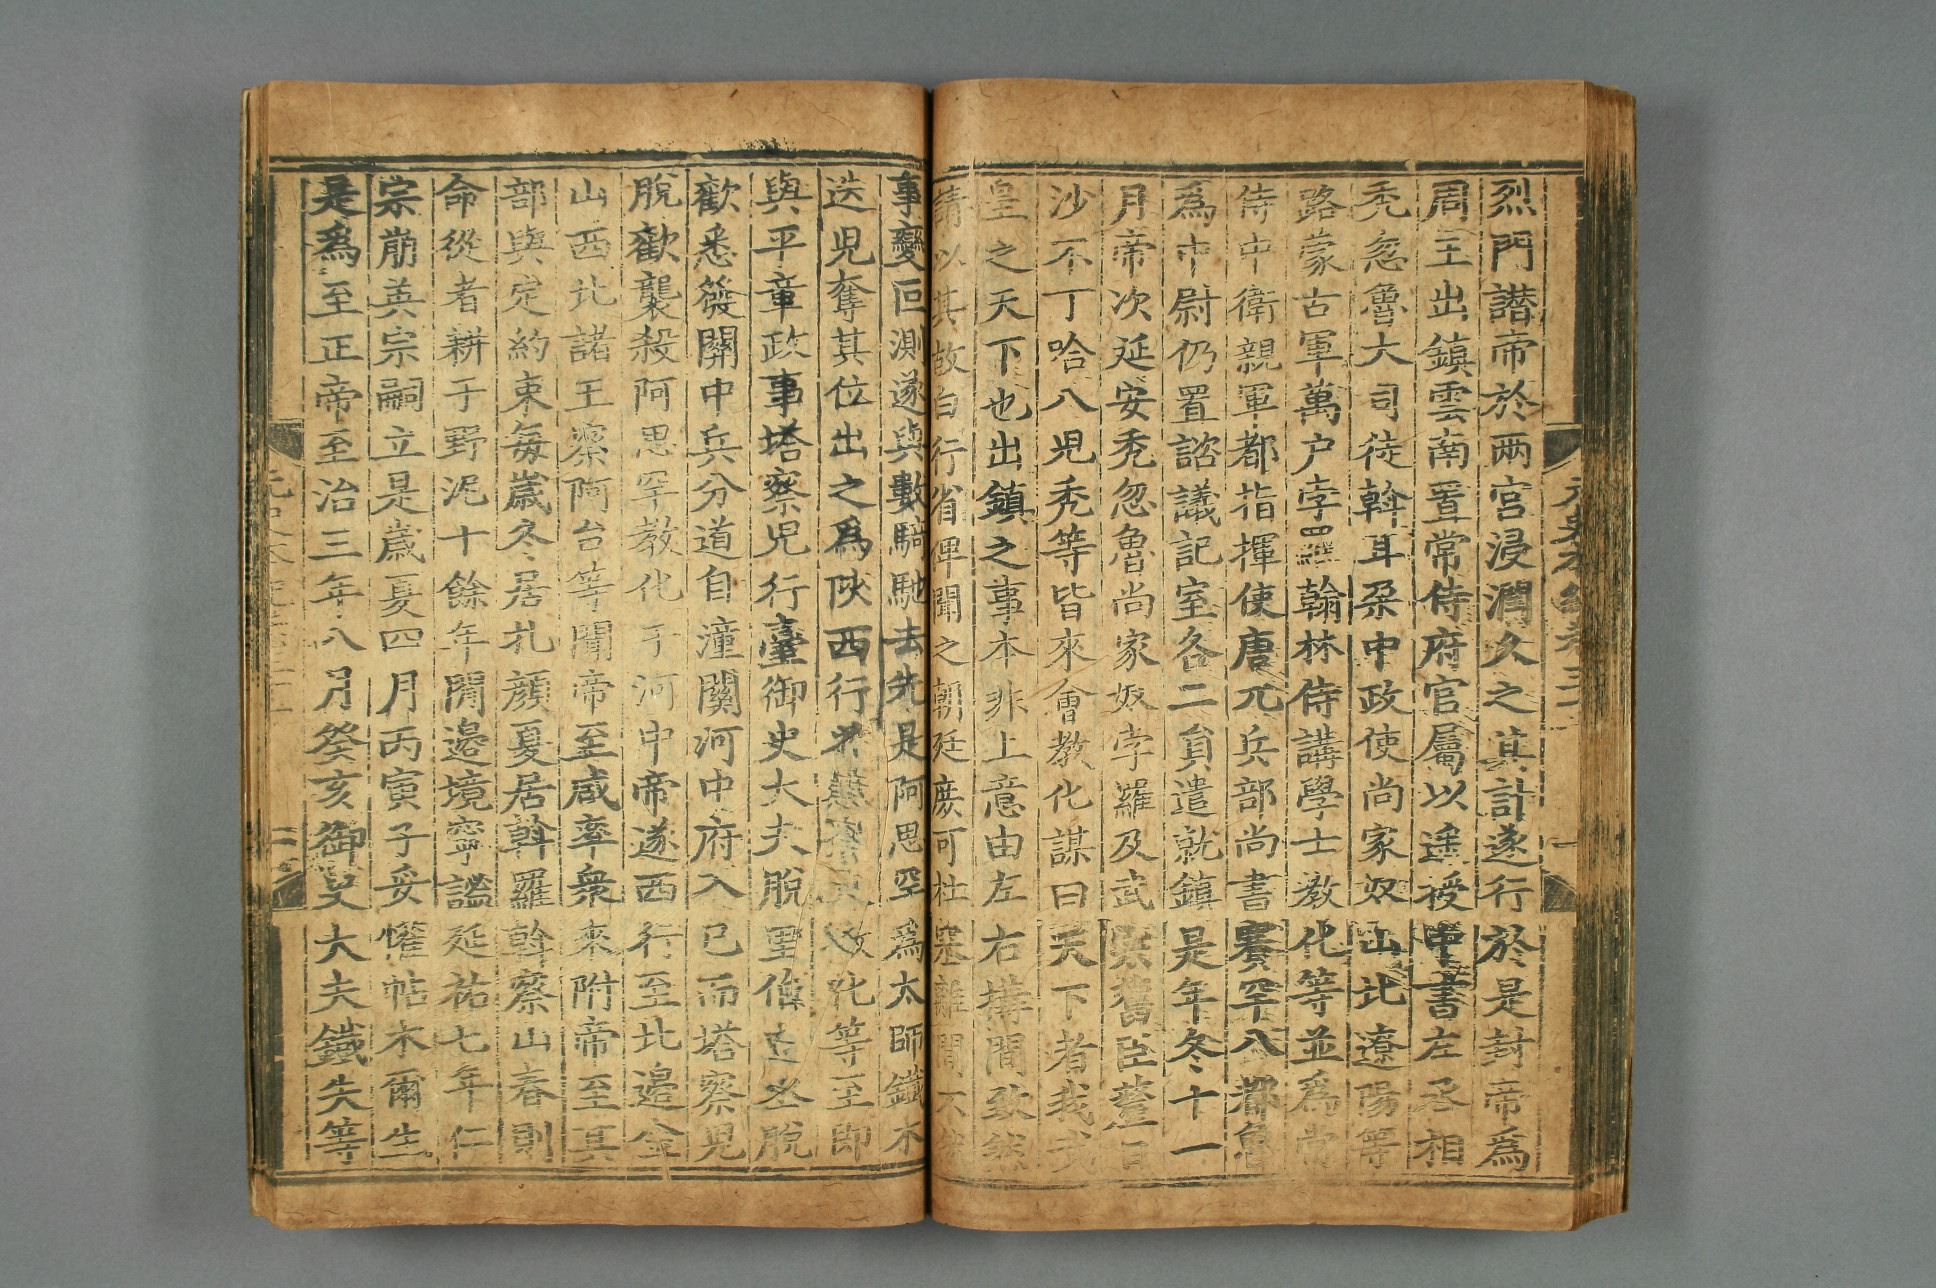 烈門譖帝於兩宮浸潤久之其計遂行於是封帝爲
周王出鎮雲南置常侍府官屬以遥授中書左丞相
禿忽魯大司徒斡耳朶中政使尚家奴山北遼陽等
路蒙古軍萬户孛羅翰林侍講學士教化等並爲常
侍中衛親軍都指揮使唐兀兵部尚書賽罕八都魯
爲中尉仍置諮議記室各二員遣就鎮是年冬十一
月帝次延安禿忽魯尚家奴孛羅及武宗舊臣釐日
沙不丁哈八児禿等皆來會教化謀曰天下者我武
皇之天下也出鎮之事本非上意由左右搆間致然
請以其故白行省俾聞之朝廷庶可杜塞離間不然
事變叵測遂與數騎馳去先是阿思罕爲太師鐵木
迭児奪其位出之爲陜西行省丞相及教化等至即
與平章政事塔察児行臺御史大夫脫里伯中丞脫
歡悉發關中兵分道自潼關河中府入已而塔察児
脫歡襲殺阿思罕教化于河中帝遂西行至北邉金
山西北諸王察阿台等聞帝至咸率衆來附帝至其
部與定約束毎歲冬居扎顏夏居斡羅斡察山春則
命從者耕于野泥十餘年閒邉境寧謐延祐七年仁
宗崩英宗嗣立是歲夏四月丙寅子妥懽帖木爾生
是爲至正帝至治三年八月癸亥御史大夫鐵失等